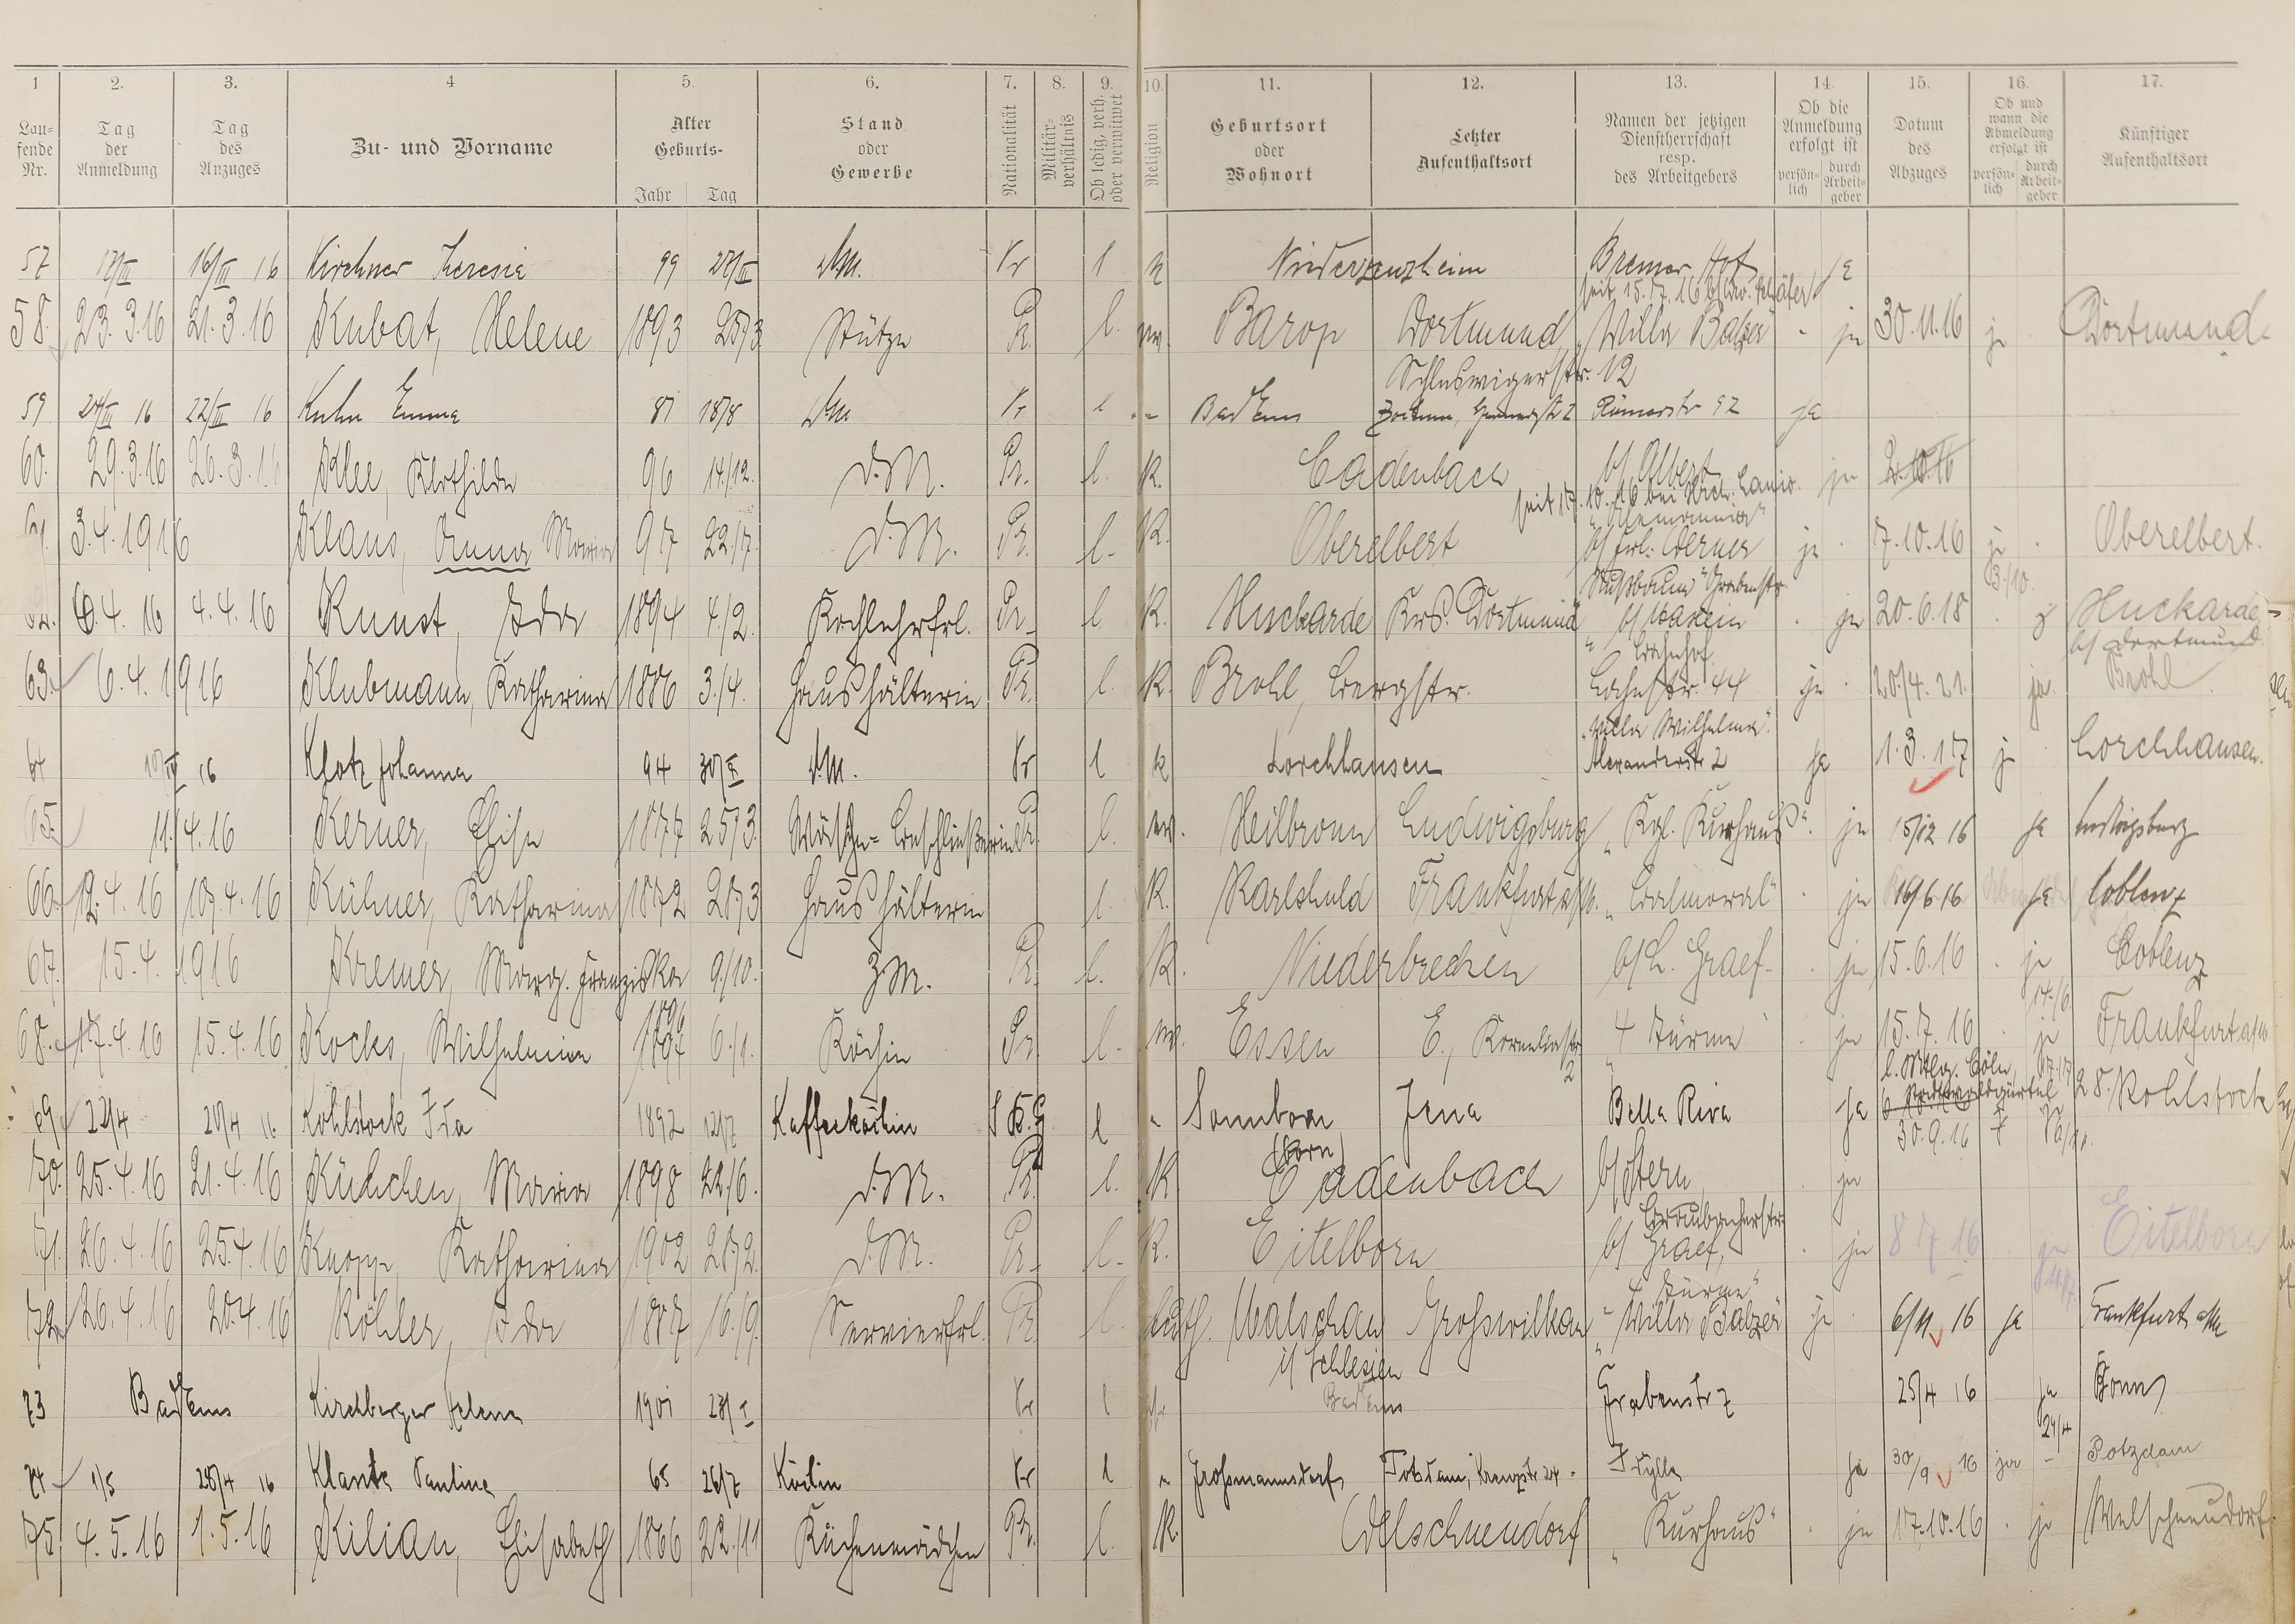 1 2. 3. 4 5. 6. 7. 8. 9. 10. 11. 12. 13. 14. 15. 16. 17.
Laufende Nr. Tag der Anmeldung Tag des Anzuges Zu- und Vorname Alter Geburts- Jahr Tag Stand oder Gewerbe Nationalität Militärverhältnis Ob ledig, verh. oder verwitwet Religion Geburtsort oder Wohnort Letzter Aufenthaltsort Namen der jetzigen Dienstherrschaft resp. des Arbeitgebers Ob die Anmeldung erfolgt ist persönlich durch Arbeitgeber Datum des Abzuges Ob und wann die Abmeldung erfolgt ist persönlich durch Arbeitgeber Künftiger Aufenthaltsort
57 16/III 16 Kirchner Theresia 99 27/II DM. Pr l k Niederzeuzheim Bremer Hof ja
seit 15.7.16
58. 23.3.16 21.3.16 Kubat, Helene 1893 25/3 Stütze Pr. l. ev. Barop Dortmund "Villa Balzer" ja 30.11.16 ja Dortmund
Schleswigerstr. 12
59 24/III 16 22/III 16 Kuhn Emma 81 18/8 DM Pr l Bad Ems Römerstr 92 ja
60. 29.3.16 26.3.16 Klee, Klothilde 96 14/12. D.M. Pr. l. K. Cadenbach b/ Albert ja 2.10.16
seit 17.10.16 bei
3.4.1916 Klaus, Anna Maria 97 22./7. D.M. Pr. l. K. Oberelbert b/ Frl. Werner ja 7.10.16 ja 3./10. Oberelbert.
Nußbaum Grabenstr.
6.4.16 4.4.16 Kunst, Ida 1894 4./2. Kochlehrfrl. Pr. l. K. Huckarde Krs. Dortmund ja 20.6.18 Huckarde b/ Dortmund
Bahnhof
63. 6.4.1916 Klubmann, Katharina 1886 3./4. Haushälterin Pr. l. K. Brohl, Bergstr. Lahnstr. 44 ja 20./4.21. ja. Brohl
"Villa Wilhelma"
64 10/IV 16 Klotz Johanna 94 D.M. Pr l k Lorchhausen Alexanderstr 2 ja 1.3.17 ja Lorchhausen.
65. 11.4.16 Kerner, Elise 1877 25/3. Wäsche-Beschließerin Pr. l. ev. Heilbronn Ludwigsburg "Kgl. Kurhaus" ja 15/12 16 ja Ludwigsburg
66. 12.4.16 10.4.16 Kühner, Katharina 1872 28/3 Haushälterin l. K. Karlshuld Frankfurt a/M. "Balmoral" ja 16/6 16 ja Coblenz
67. 15.4.1916 Kremer, Marg. Franziska 9/10. Z.M. Pr. l. K. Niederbrechen b/ L. Graef ja 15.6.16 ja 14./6 Coblenz
1896
68. 17.4.16 15.4.16 Kocks, Wilhelmine 6./1. Köchin Pr. l. ev. Essen E., Kornelienstr 2 "4 Türme" ja 15.7.16 ja Frankfurt a/M.
69 22/4 20/4 16 Kohlstock Ida 1892 12/7 Kaffeeköchin l Sonneborn Jena Bella Riva ja 30.9.16 Kohlstock
70. 25.4.16 21.4.16 Küchchen, Maria 1898 22./6. D.M. Pr. l. K Cadenbach b/ Stern, ja
71. 26.4.16 25.4.16 Knopp, Katharina 1902 28/2. D.M. Pr. l. K. Eitelborn b/ Graef, ja 8.7.16 ja Eitelborn
"4 Türme"
72. 26.4.16 20.4.16 Köhler, Ida 1887 16./9. Servierfrl. Pr l. kath. Malschau Großwilkau "Villa Balzer" ja 6/11 16 ja Frankfurt a/M
i/ Schlesien
73 Bad Ems Kirchberger Helene 1901 28/I Pr l Bad Ems Grabenstr 7 25/4 16 ja 24/4 Bonn
74 1/5 28/4 16 Klante Pauline 65 26/7 Köchin Pr l Großmannsdorf Potsdam, Kreuzstr 24 Idylle ja 30/9 16 ja – Potzdam
75. 4.5.16 1.5.16 Kilian, Elisabeth 1866 22./11 Küchenmädchen Pr. l. K. Welschneudorf "Kurhaus" ja 17.10.16 ja Welschneudorf.